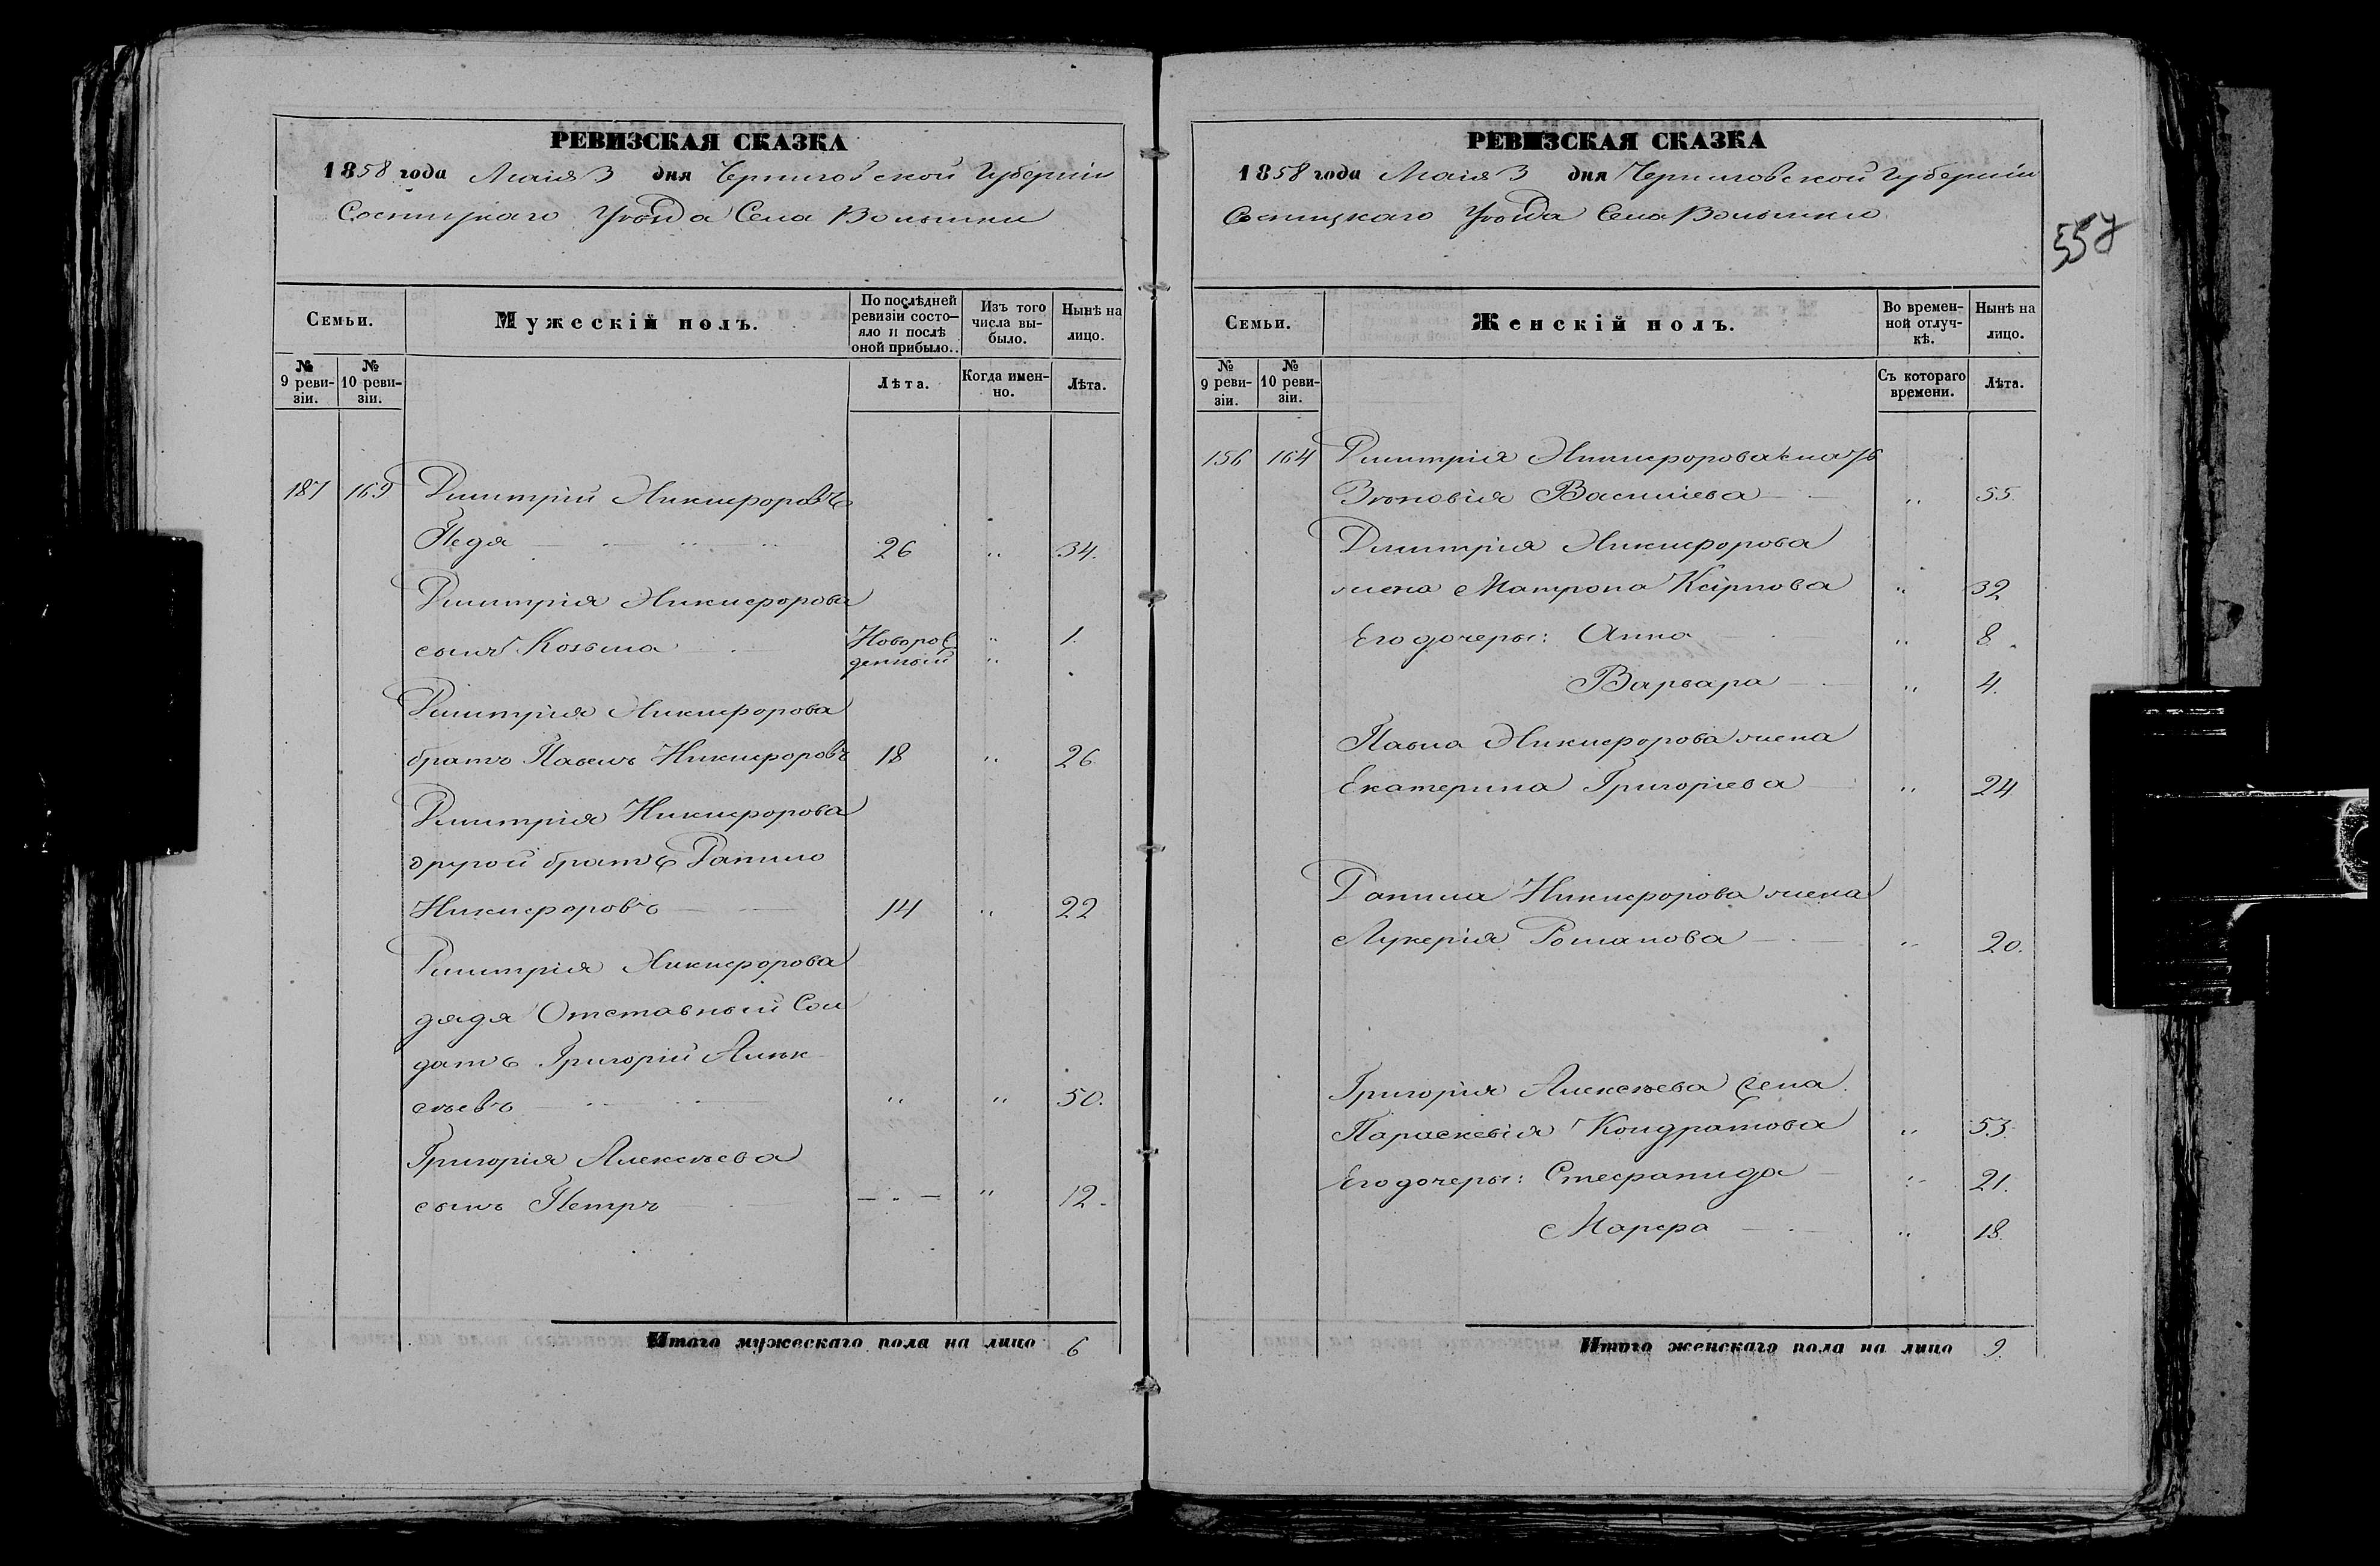 РЕВИЗСКАЯ СКАЗКА
1858 года Маія 3 дня Черниговской Губерніи
Сосницкаго Уѣзда Села Волынки
Семьи.
Мужескій полъ.
По послѣдней ревизіи состо-
яло и послѣ
оной прибыло..
Изъ того
числа вы-
было.
Нынѣ на
лицо.
№
9 реви-
зіи.
№
10 реви-
зіи.
Лѣта.
Когда имен-
но.
Лѣта.
187 169 Димитрій Никифоровъ
Педя 26 " 34.
Димитрія Никифорова
сынъ Козьма Новорож
денный " 1.
Димитрія Никифорова
братъ Павелъ Никифоровъ 18 " 26
Димитрія Никифорова
другой братъ Данило
Никифоровъ 14 " 22
Димитрія Никифорова
дядя Отставный Сол
датъ Григорій Алек
сѣевъ " " 50.
Григорія Алексѣева
сынъ Петръ — " — " 12.
Итого мужескаго пола на лицо 6
РЕВИЗСКАЯ СКАЗКА
1858 года Маія 3 дня Черниговской Губерніи
Сосницкаго Уѣзда Села Волынки
557
Семьи.
Женскій полъ.
Во времен-
ной отлуч-
кѣ.
Нынѣ на
лицо.
№
9 реви-
зіи.
№
10 реви-
зіи.
Съ котораго
времени.
Лѣта.
156 164 Димитрія Никифорова мать
Зѣновія Василіева " 55.
Димитрія Никифорова
жена Матрона Карпова " 32
Его дочеры: Анна " 8.
Варвара " 4.
Павла Никифорова жена
Екатерина Григоріева " 24
Данила Никифорова жена
Лукерія Романова " 20.
Григорія Алексѣева жена
Параскевія Кондратова " 53.
Его дочеры: Стефанида " 21.
Марфа " 18.
Итого женскаго пола на лицо 9.